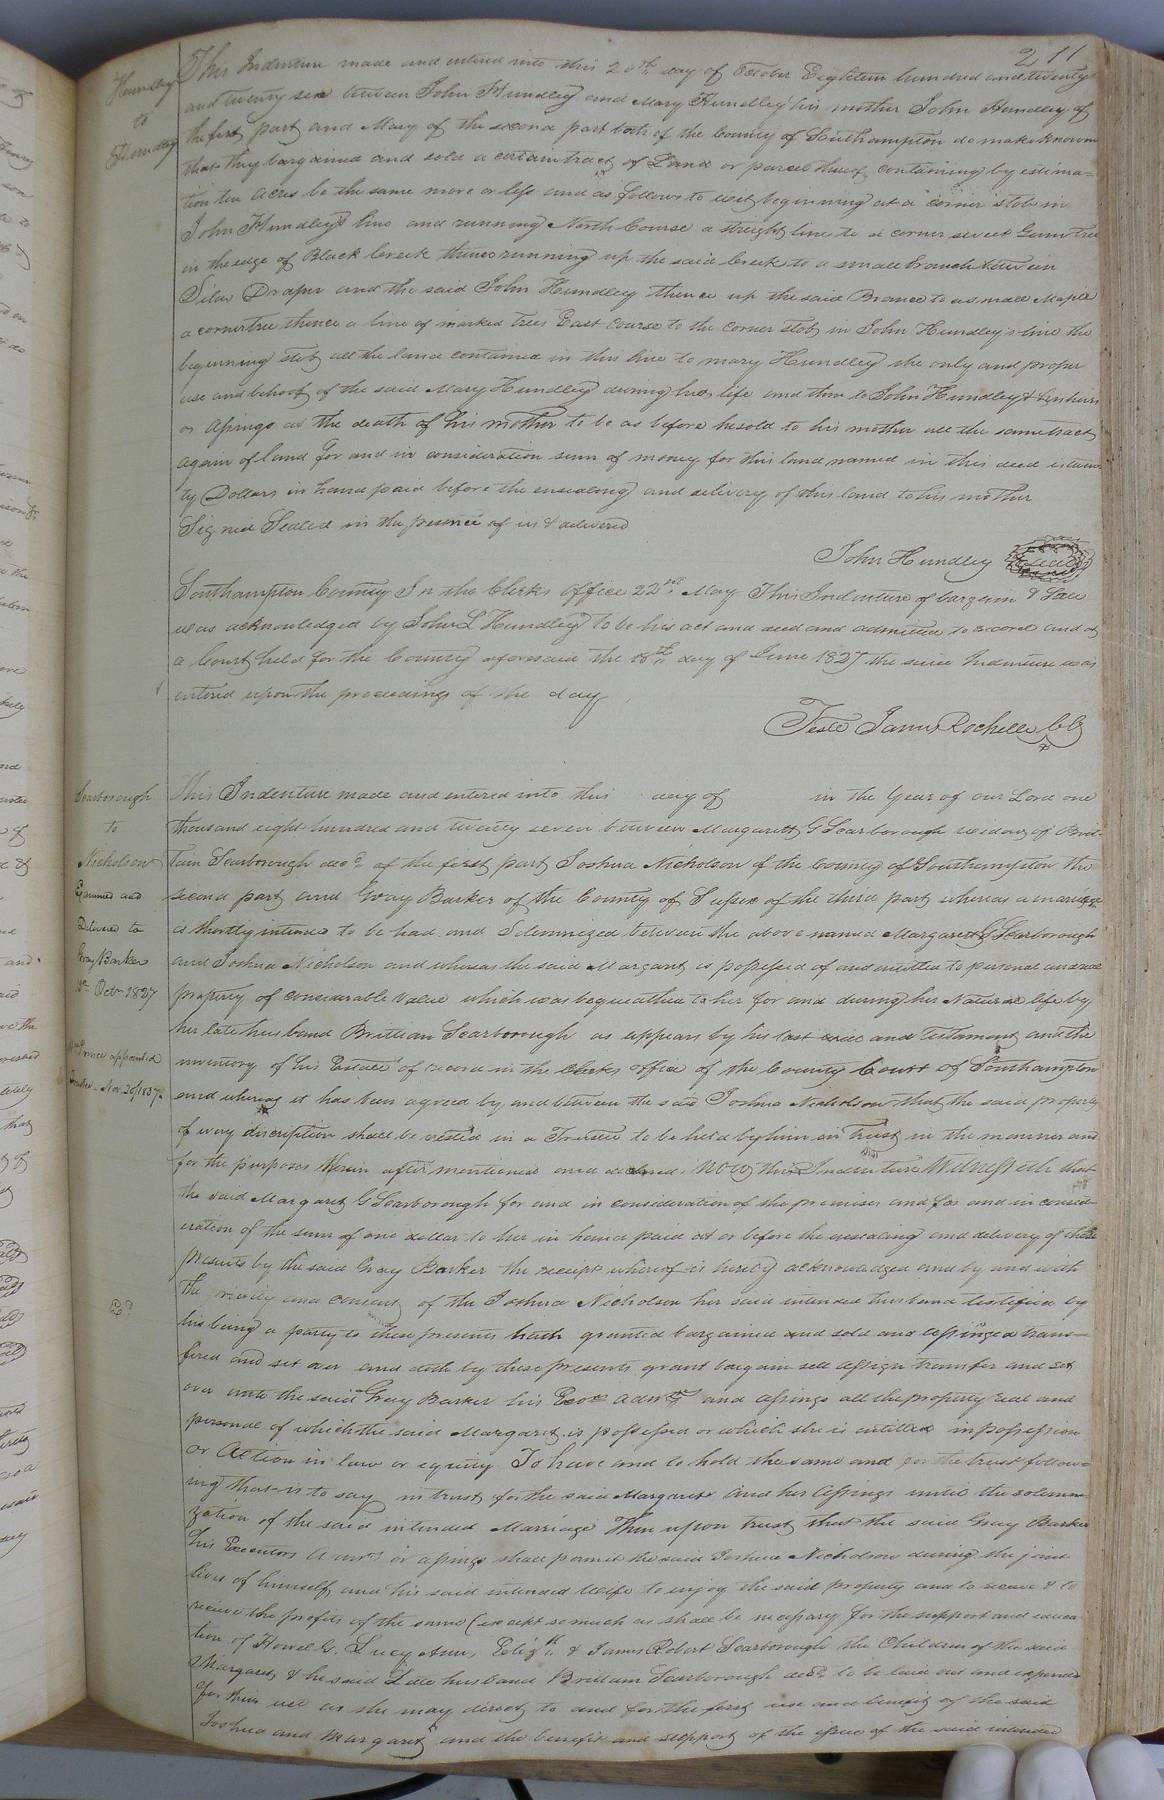 211
Hundley
to
Hundley
This Indenture made and entered into this 20th day of October Eighteen hundred and twenty
and twenty six between John Hundley and Mary Hundley his mother John Hundley of
the first part and Mary of the second part both of the County of Southampton do make known
that they bargained and sold a certain tract of Land or parcel thereof containing by estima=
tion ten acres be the same more or less and as follows to wit beginning at a corner stob in
John Hundley's line and running North Course a streight line to a corner sweet Gum tree
in the edge of Black Creek thence running up the said Creek to a small branch between
Silas Draper and the said John Hundley thence up the said Brance to a small Maple
a corner tree thence a line of marked trees East course to the corner stob in John Hundley's line the
beginning stob all the land contained in this line to mary Hundley the only and proper
use and behoof of the said Mary Hundley during her life and then to John Hundley & his heirs
or assings at the death of his mother to be as before he sold to his mother all the same tract
again of land for and in consideration sum of money for this land named in this deed is twen
ty Dollars in hand paid before the ensealing and delivery of this land to his mother
Signed Sealed in the presence of us & delivered
John Hundley Seal
Southampton County In the Clerks office 22nd May This Indenture of bargain & Sale
was acknowledged by John L Hundley to be his act and deed and admitted to record and at
a Court held for the County aforesaid the 18th day of June 1827 the said Indenture was
entered upon the proceedings of the day
Teste James Rochelle CC
Scarborough
to
Nicholson
Examined and
Delivered to
Gray Barker
Octr 1827
Prince appointed
Trustee Nov. 20/1837
This Indenture made and entered into this day of in the Year of our Lord one
thousand eight hundred and twenty seven between Margarett G Scarborough widow of Brit-
tain Scarborough decd of the first part Joshua Nicholson of the County of Southampton the
second part and Gray Barker of the County of Sussex of the third part whereas a marriage
is shortly intended to be had and Solemnized between the above named Margarett G Scarborough
and Joshua Nicholson and whereas the said Margaret is possessed of and entitled to personal and real
property of considerable value which was bequeathed to her for and during her Natural life by
her late husband Brittian Scarborough as appears by his last will and Testament and the
inventory of his Estate of record in the Clerks office of the County Court of Southampton
and whereas it has been agreed by and between the said Joshua Nicholson that the said property
of every discription shall be vested in a Trustee to be held by him in Trust in the manner and
for the purposes herein after mentioned and declared Now this Indenture Witnesseth that
the said Margaret G Scarborough for and in consideration of the premises and for and in consid-
eration of the sum of one dollar to her in hand paid at or before the ensealing and delivery of these
presents by the said Gray Barker the receipt whereof is hereby acknowledged and by and with
the privity and consent of the Joshua Nicholson her said intended husband testified by
his being a party to these presents hath granted bargained and sold and assinged trans=
fered and set over and doth by these presents grant bargain sell assign transfer and set
over unto the said Gray Barker his Exors Admrs and assings all the property real and
personal of which the said Margaret is possessed or which she is entitled in possession
or Action in law or equity To have and to hold the same and for the trust follow=
ing that is to say in trust for the said Margaret and her Assings until the solemn-
zation of the said intended Marriage Then upon trust that the said Gray Barker
his Executors Admrs or assings shall permit the said Joshua Nicholson during the joint
lives of himself and his said intended Wife to enjoy the said property and to receive & to
receive the profits of the same (except so much as shall be necessary for the support and educa-
tion of Howel G. Lucy Ann, Elizth & James Robert Scarborough the Children of the said
Margaret & the said Late husband Brittain Scarborough decd to be laid out and expended
for their use as she may direct to and for the use and benefit of the said
Joshua and Margaret and the benefit and support of the issue of the said intended